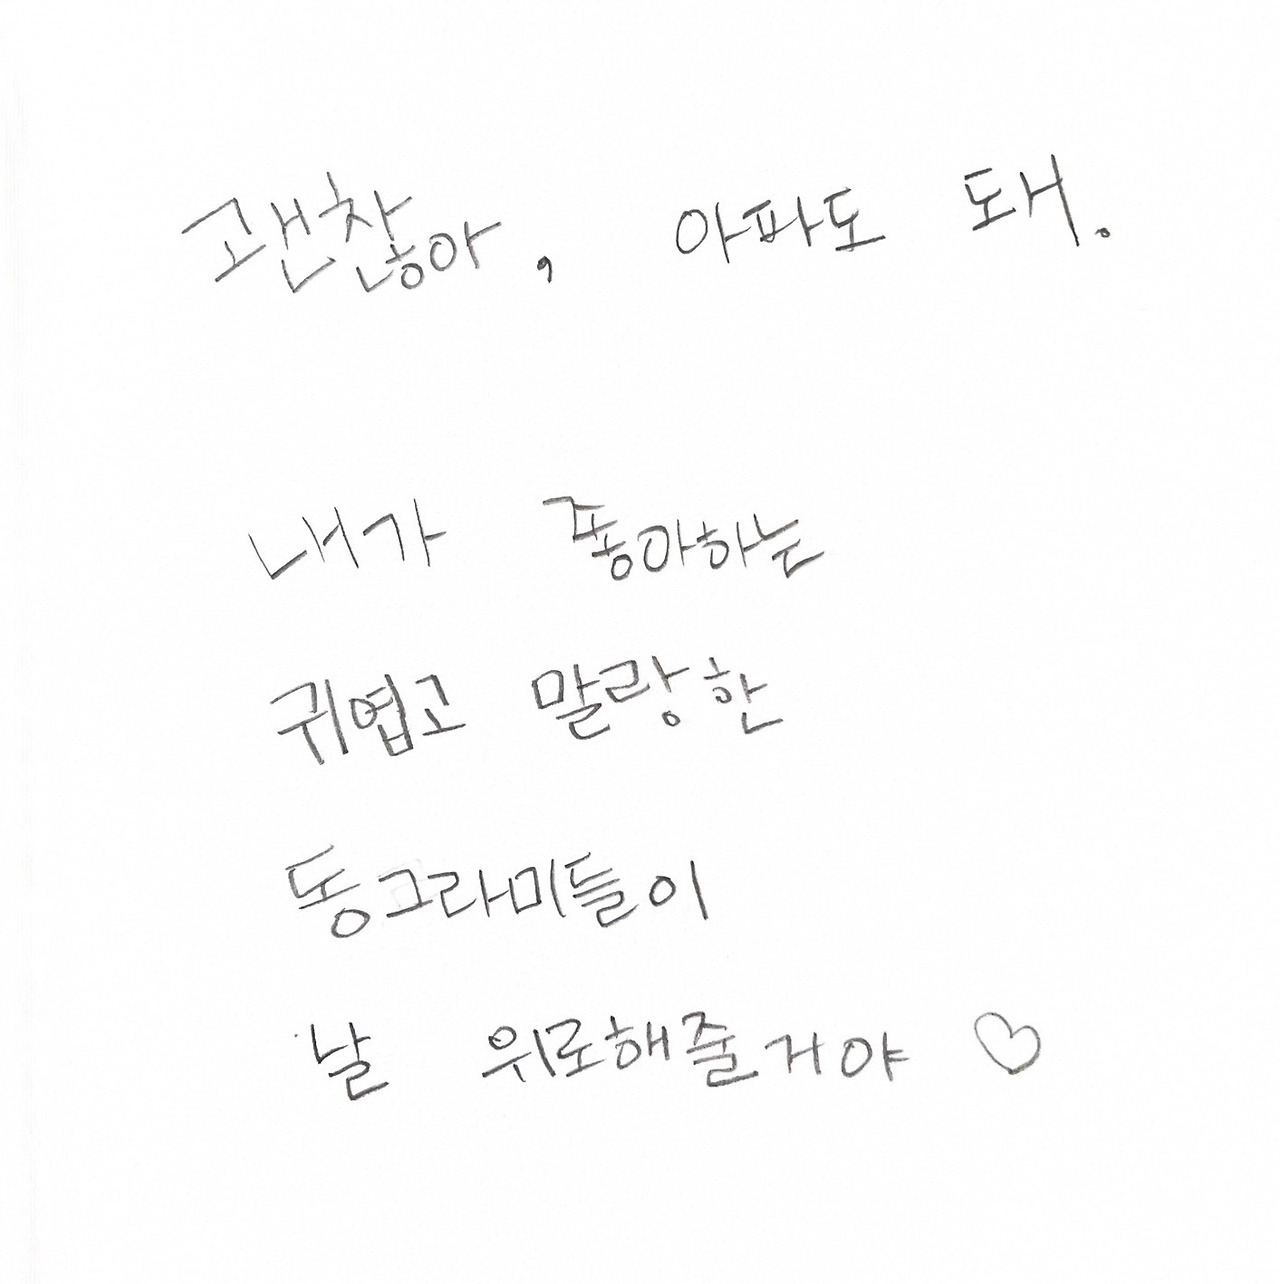 괜찮아, 아파도 돼.
내가 좋아하는
귀엽고 말랑한
동그라미들이
날 위로해줄거야 ♡